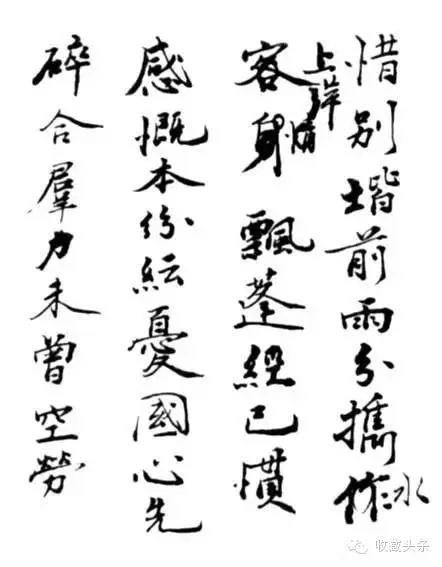 惜別堦前雨分攜作水
上萍
客身飄蓬經已慣
感慨本紛紜憂國心先
碎合羣力未曾空勞
收藏头条